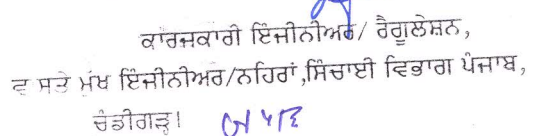 ਕਾਰਜਕਾਰੀ ਇੰਜੀਨੀਅਰ/ ਰੈਗੂਲੇਸ਼ਨ,
ਵ ਸਤੇ ਮੁੱਖ ਇੰਜੀਨੀਅਰ/ਨਹਿਰਾਂ,ਸਿੰਚਾਈ ਵਿਭਾਗ ਪੰਜਾਬ,
ਚੰਡੀਗੜ੍ਹ।